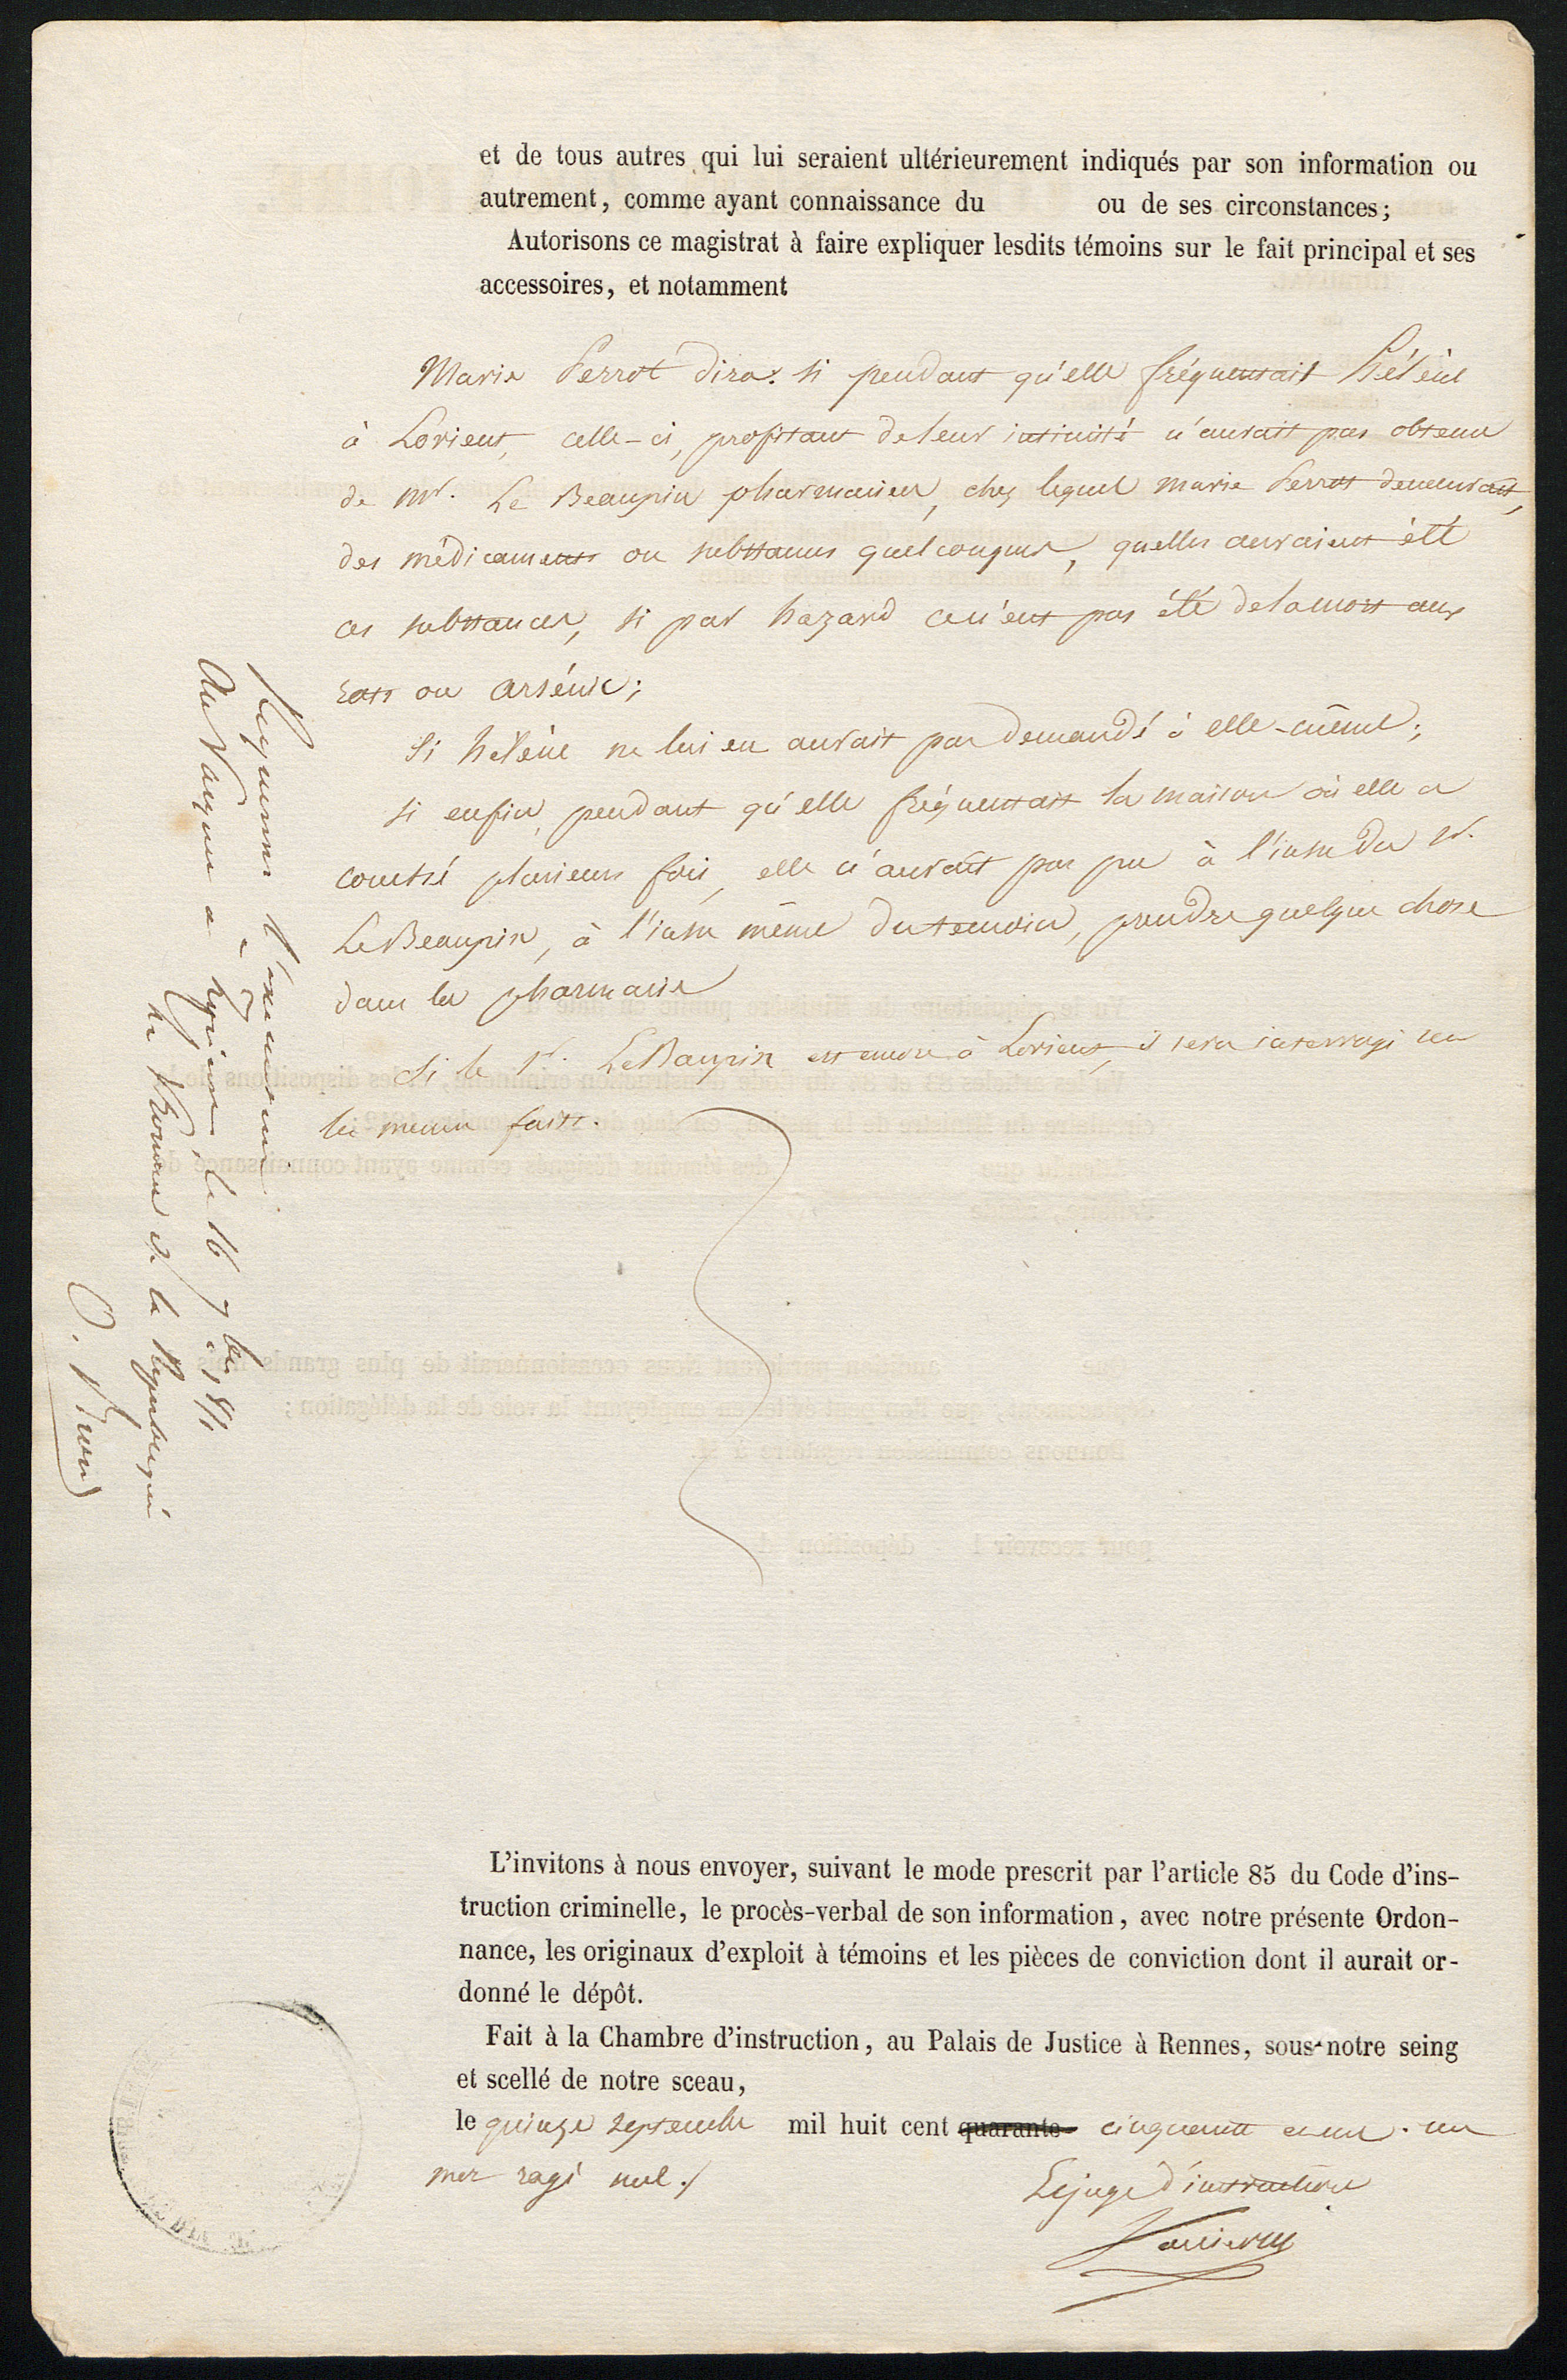 et de tous autres qui lui seraient ultérieurement indiqués par son information ou
autrement, comme ayant connaissance du ou de ses circonstances;
Autorisons ce magistrat à faire expliquer lesdits témoins sur le fait principal et ses
accessoires, et notamment
Marie Perrot dira: si pendant qu'elle fréquentait hélène
à Lorient, celle-ci, profitant de leur intimité n'aurait pas obtenu
de Mr. Le Beaupin pharmacien, chez lequel marie Perrot demeurait,
des médicaments ou substances quelconques, quelles auraient été
ces substances, si par hazard ce n'eut pas été de la mort aux
rats ou arsénic;
Si hélène ne lui en aurait pas demandé à elle-même;
si enfin, pendant qu'elle fréquentait la maison où elle a
couché plusieurs fois, elle n'aurait pas pu à l'insu du Sr.
Le Beaupin, à l'insu même du temoin, prendre quelque chose
dans la pharmacie
Si le Sr. Le Baupin est encore à Lorient, il sera interrogé sur
les memes faits.
Requérons l'exécution
Au Parquet à Lorient, le 16 7bre 1851
Le Procureur de la République
L'invitons à nous envoyer, suivant le mode prescrit par l'article 85 du Code d'ins-
truction criminelle, le procès-verbal de son information, avec notre présente Ordon-
nance, les originaux d'exploit à témoins et les pièces de conviction dont il aurait or-
donné le dépôt.
Fait à la Chambre d'instruction, au Palais de Justice à Rennes, sous notre seing
et scellé de notre sceau,
le quinze septembre mil huit cent quarante cinquante et un. un
mot rayé nul./
Le juge d'instruction